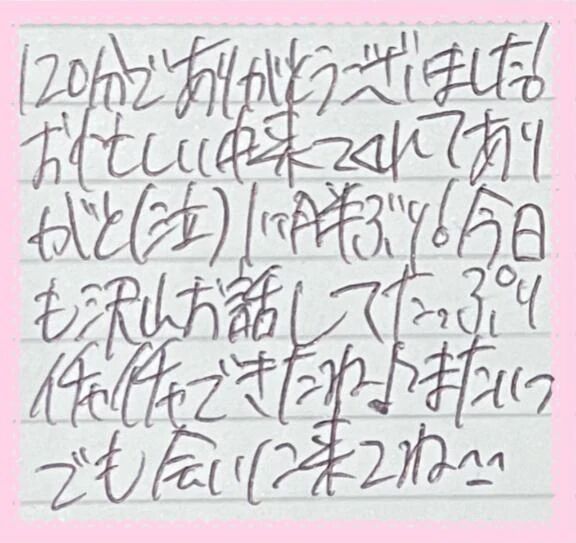 120分でありがとうございました!
お忙しい中来てくれてあり
がと(泣)1ヶ月半ぶり!今日
も沢山お話してたっぷり
イチャイチャできたね♪またいつ
でも会いに来てね^^